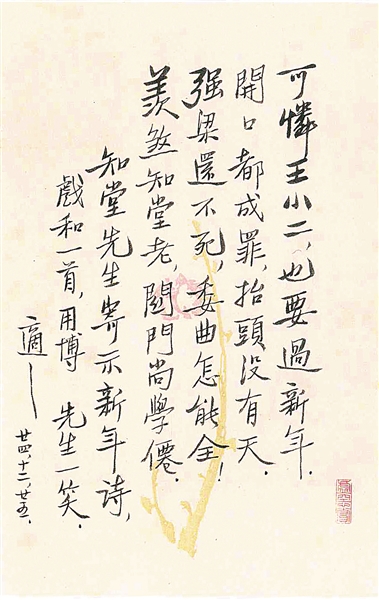 可憐王小二,也要過新年.
開口都成罪,抬頭没有天.
强梁還不死,委曲怎能全!
羨煞知堂老,関門尚學僊.
知堂先生寄示新年诗,
戲和一首,用博 先生一笑.
適
廿四、十二、廿五.